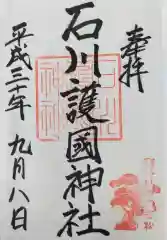 奉拝
石川護國神社
平成三十年 九月八日